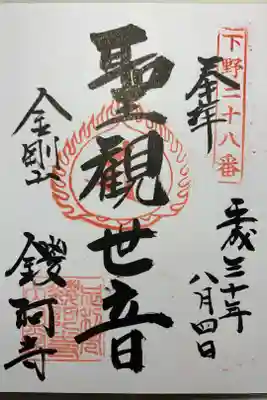 下野二十八番
奉拝
平成三十年
八月四日
聖観世音
金剛山
鑁阿寺